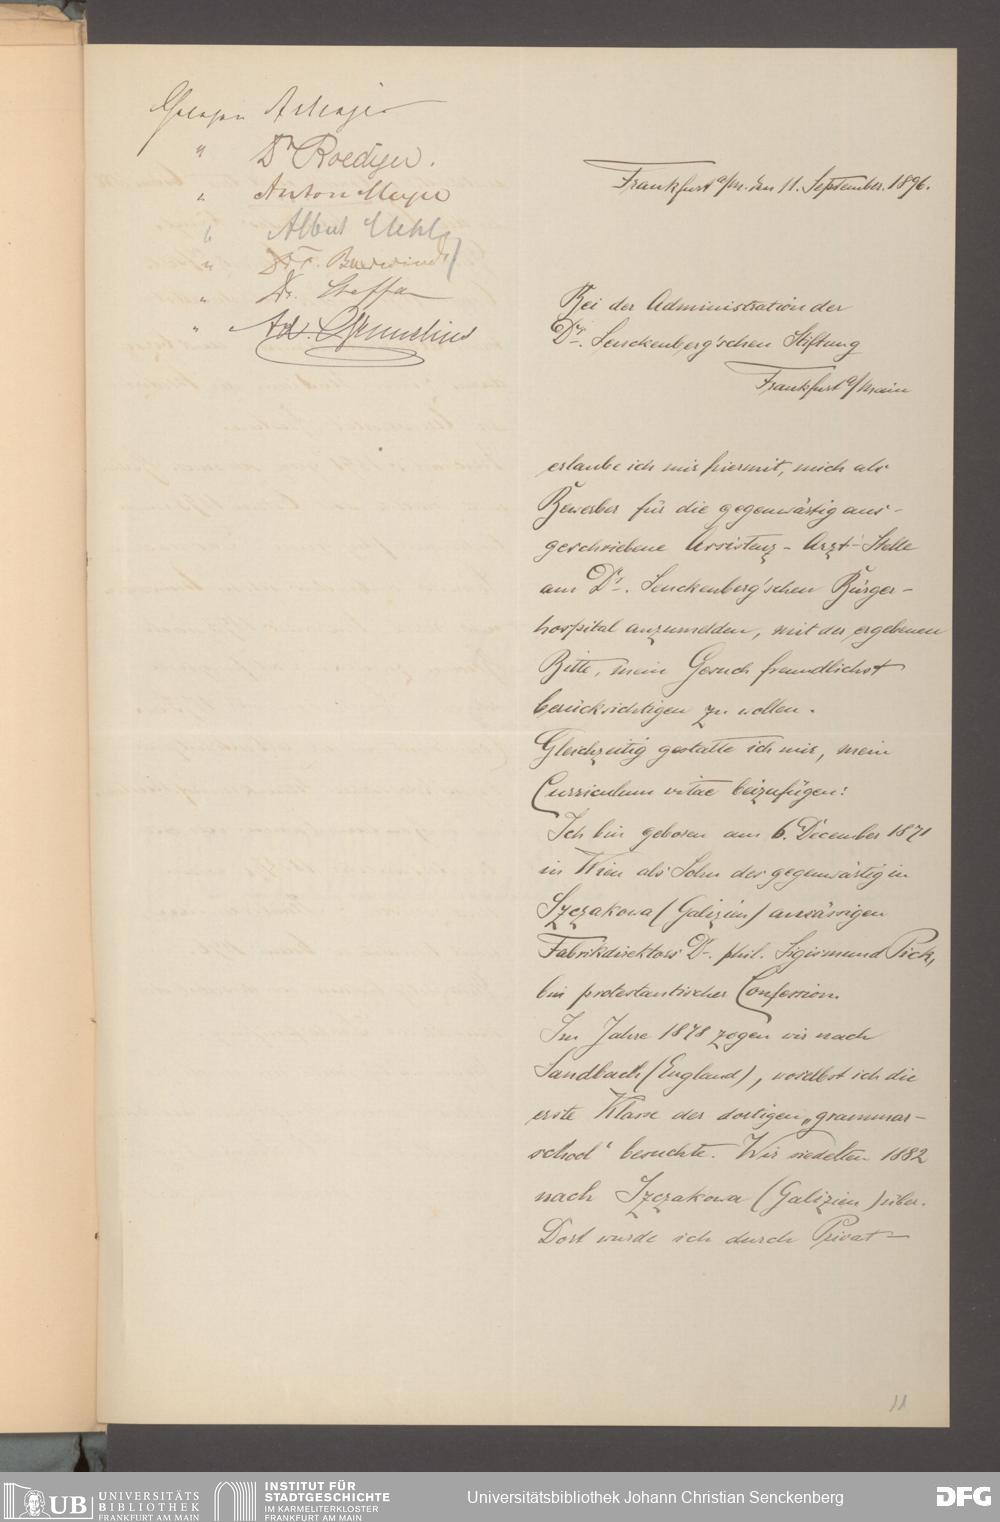 Gelesen
" Dr Roediger.
" Anton Meyer
" Albert
"
" Dr. Steffan
"
Frankfurt a/M. den 11. September 1896.
Bei der Administration der
Dr. Senckenberg'schen Stiftung
Frankfurt a/Main
erlaube ich mir hiermit, mich als
Bewerber für die gegenwärtig aus-
geschriebene Assistenz-Arzt-Stelle
am Dr. Senckenberg'schen Bürger-
hospital anzumelden, mit der ergebenen
Bitte, mein Gesuch freundlichst
berücksichtigen zu wollen.
Gleichzeitig gestatte ich mir, mein
Curriculum vitae beizufügen:
Ich bin geboren am 6. December 1871
in Wien als Sohn des gegenwärtig in
Szczakowa (Galizien) ansässigen
Fabrikdirektors Dr. phil. Sigismund Pick,
bin protestantischer Confession.
Im Jahre 1878 zogen wir nach
Sandbach (England), woselbst ich die
erste Klasse der dortigen „grammar-
school“ besuchte. Wir siedelten 1882
nach Szczakowa (Galizien) über.
Dort wurde ich durch Privat-
11
UB UNIVERSITÄTS
BIBLIOTHEK
FRANKFURT AM MAIN
INSTITUT FÜR
STADTGESCHICHTE
IM KARMELITERKLOSTER
FRANKFURT AM MAIN
Universitätsbibliothek Johann Christian Senckenberg
DFG